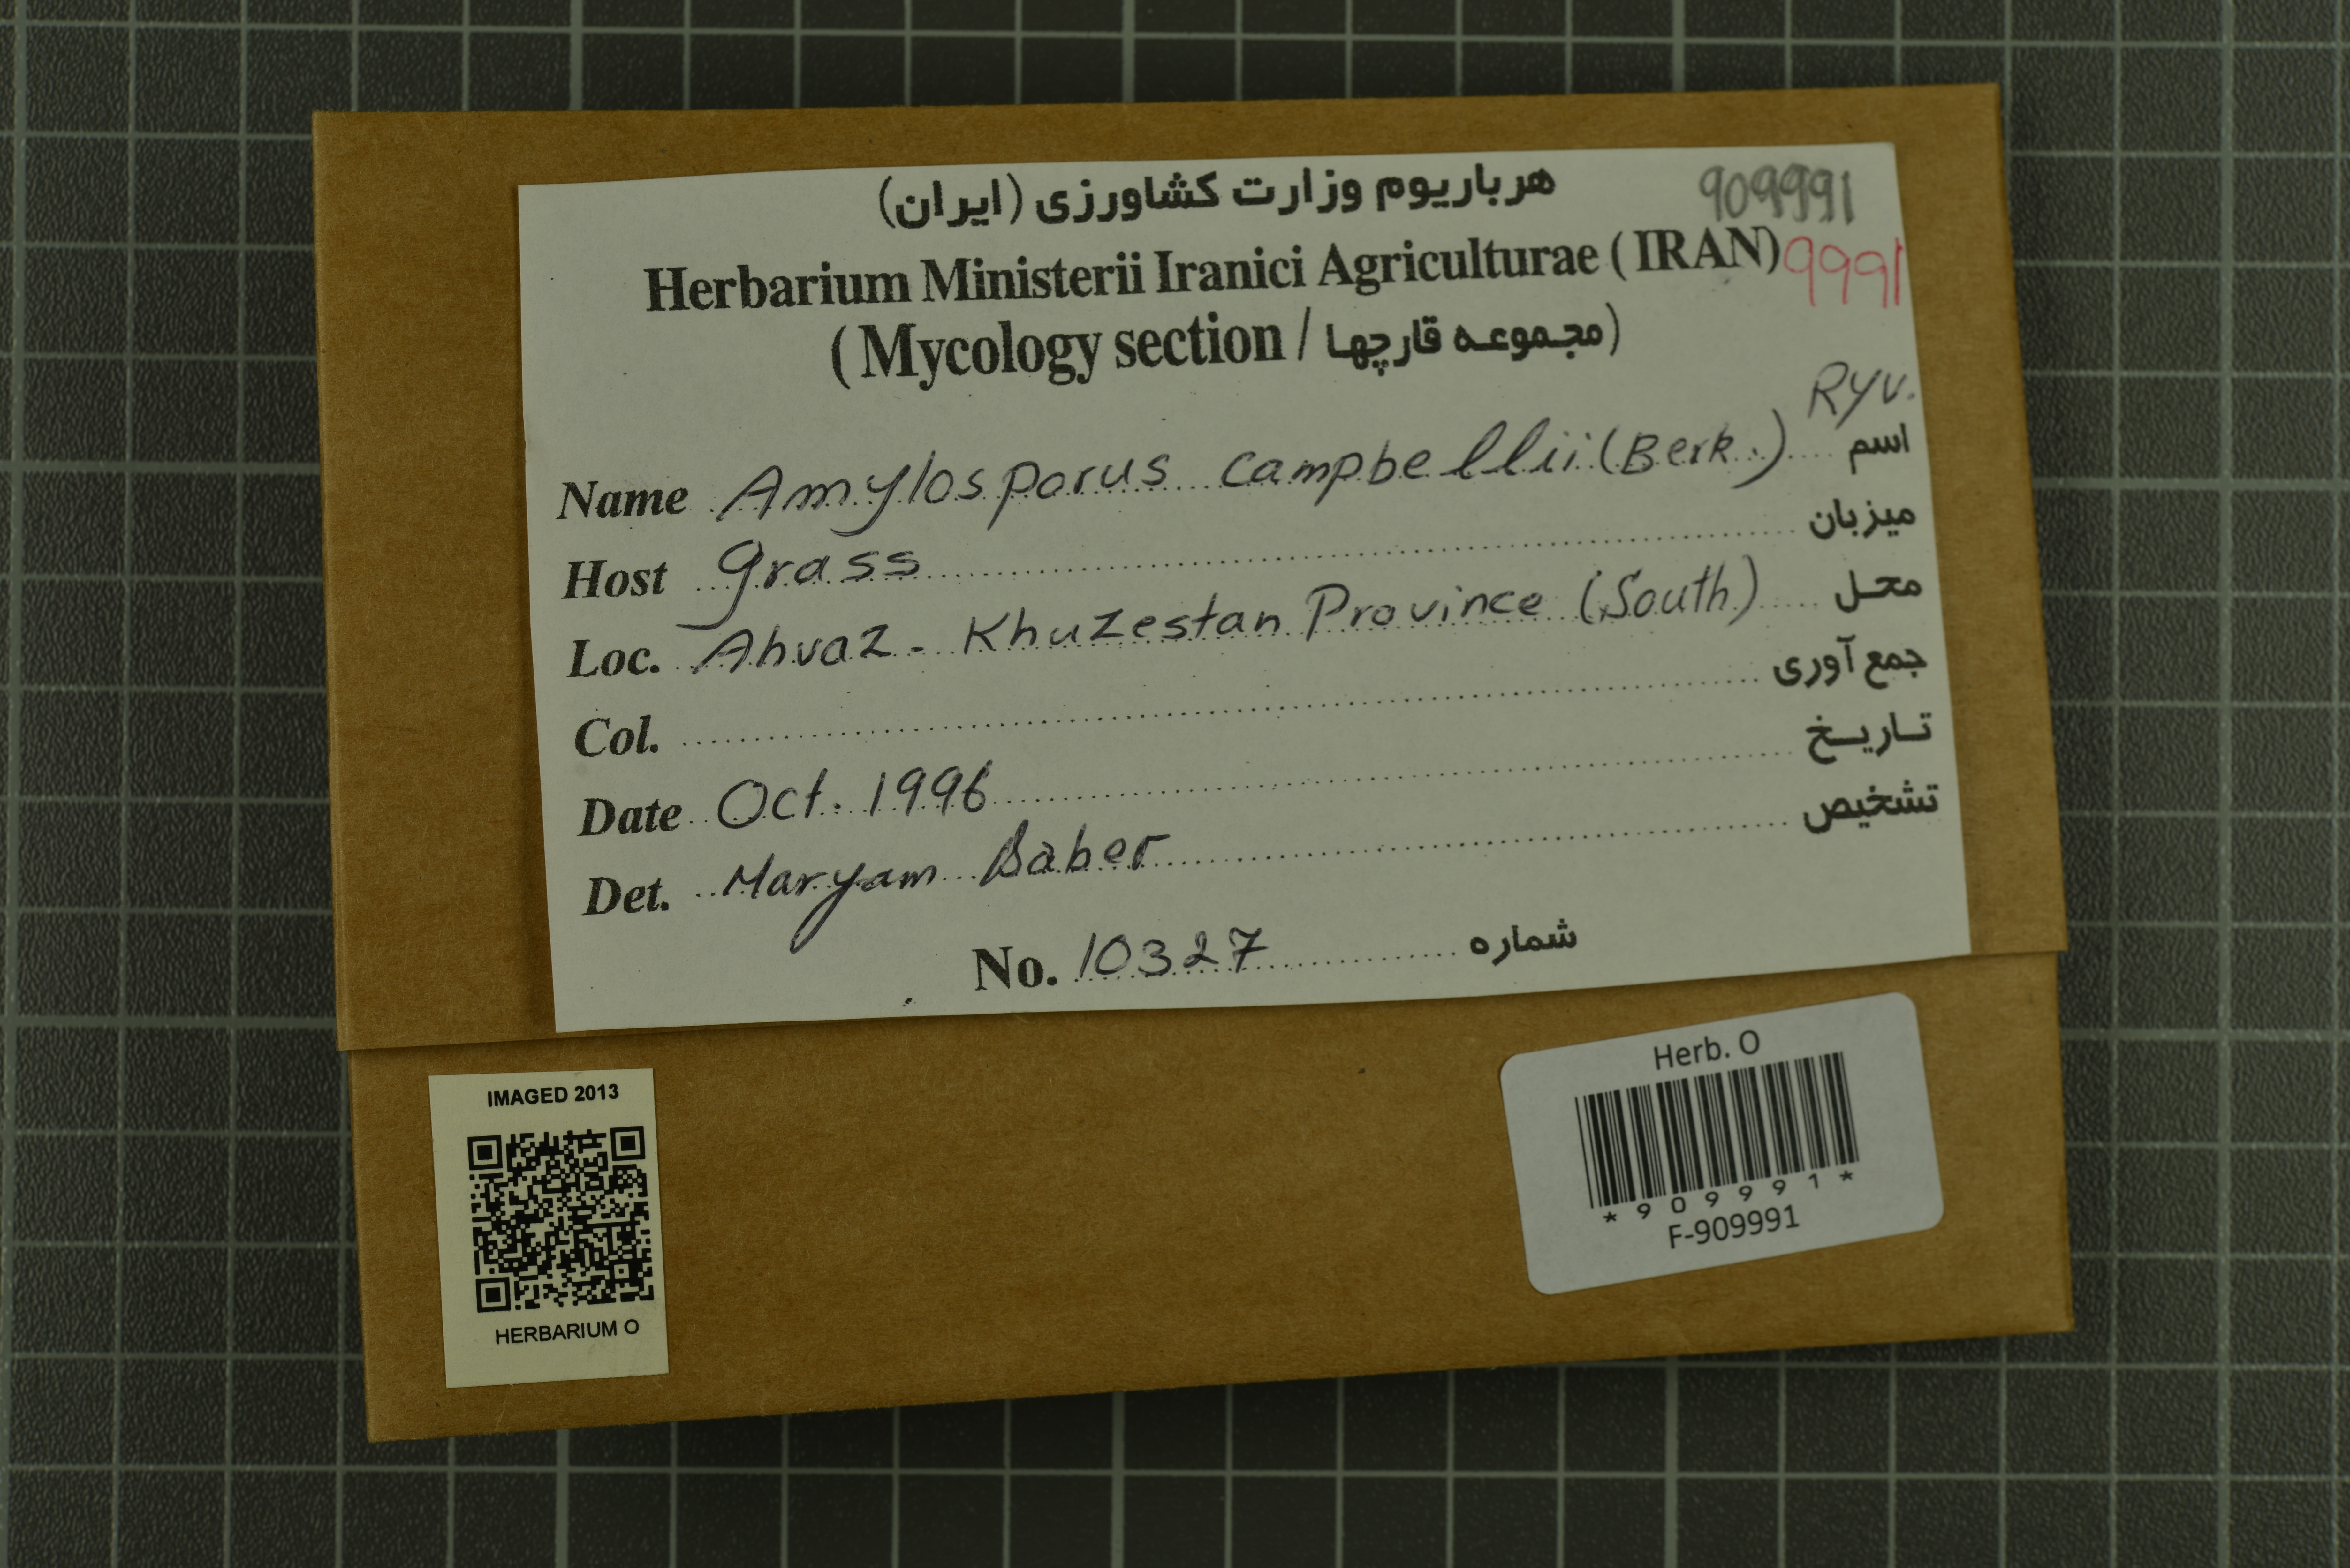 هرباریوم وزارت کشاورزی (ایران)
909991
Herbarium Ministerii Iranici Agriculturae ( IRAN)
9991
( Mycology section / مجموعه قارچها)
Ryv.
Name Amylosporus campbellii (Berk.) اسم
Host grass میزبان
Loc. Ahvaz - Khuzestan Province (South) محل
Col. جمع آوری
Date Oct. 1996 تاریخ
Det. Maryam Saber تشخیص
No. 10327 شماره
IMAGED 2013
HERBARIUM O
Herb. O
*909991*
F-909991